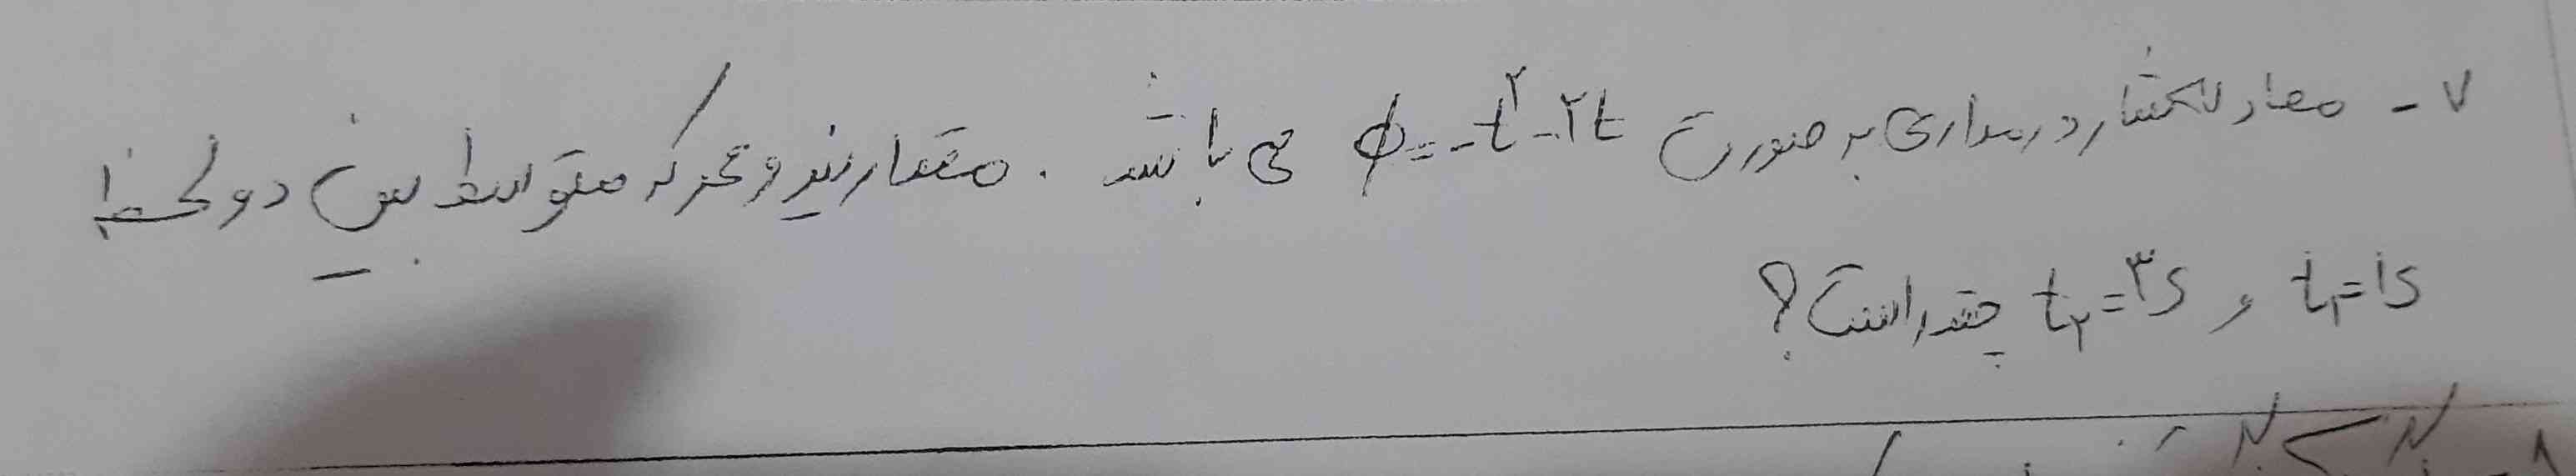 ۷- معادله شار در مداری به صورت φ=-t²-۲t می باشد. مقدار نیرو محرکه متوسط بین دو لحظه
t₁=۱s و t₂=۳s چقدر است؟